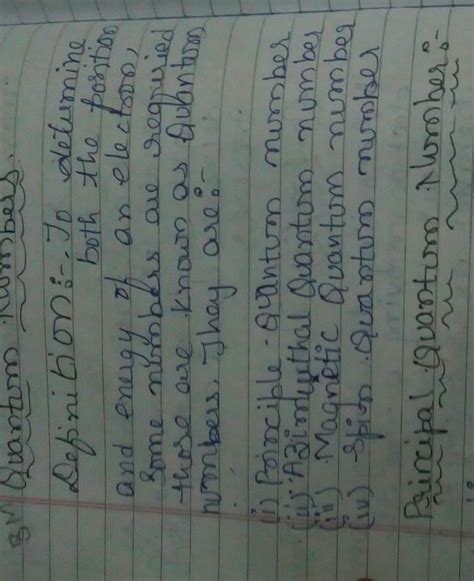 Quantum Numbers.
Definition:- To determine
both the position
and energy of an electron,
some numbers are required
those are known as Quantum
numbers. They are:-
(i) Principle Quantum number
(ii) Azimuthal Quantum number
(iii) Magnetic Quantum number
(iv) Spin Quantum number
Principal Quantum Number:-